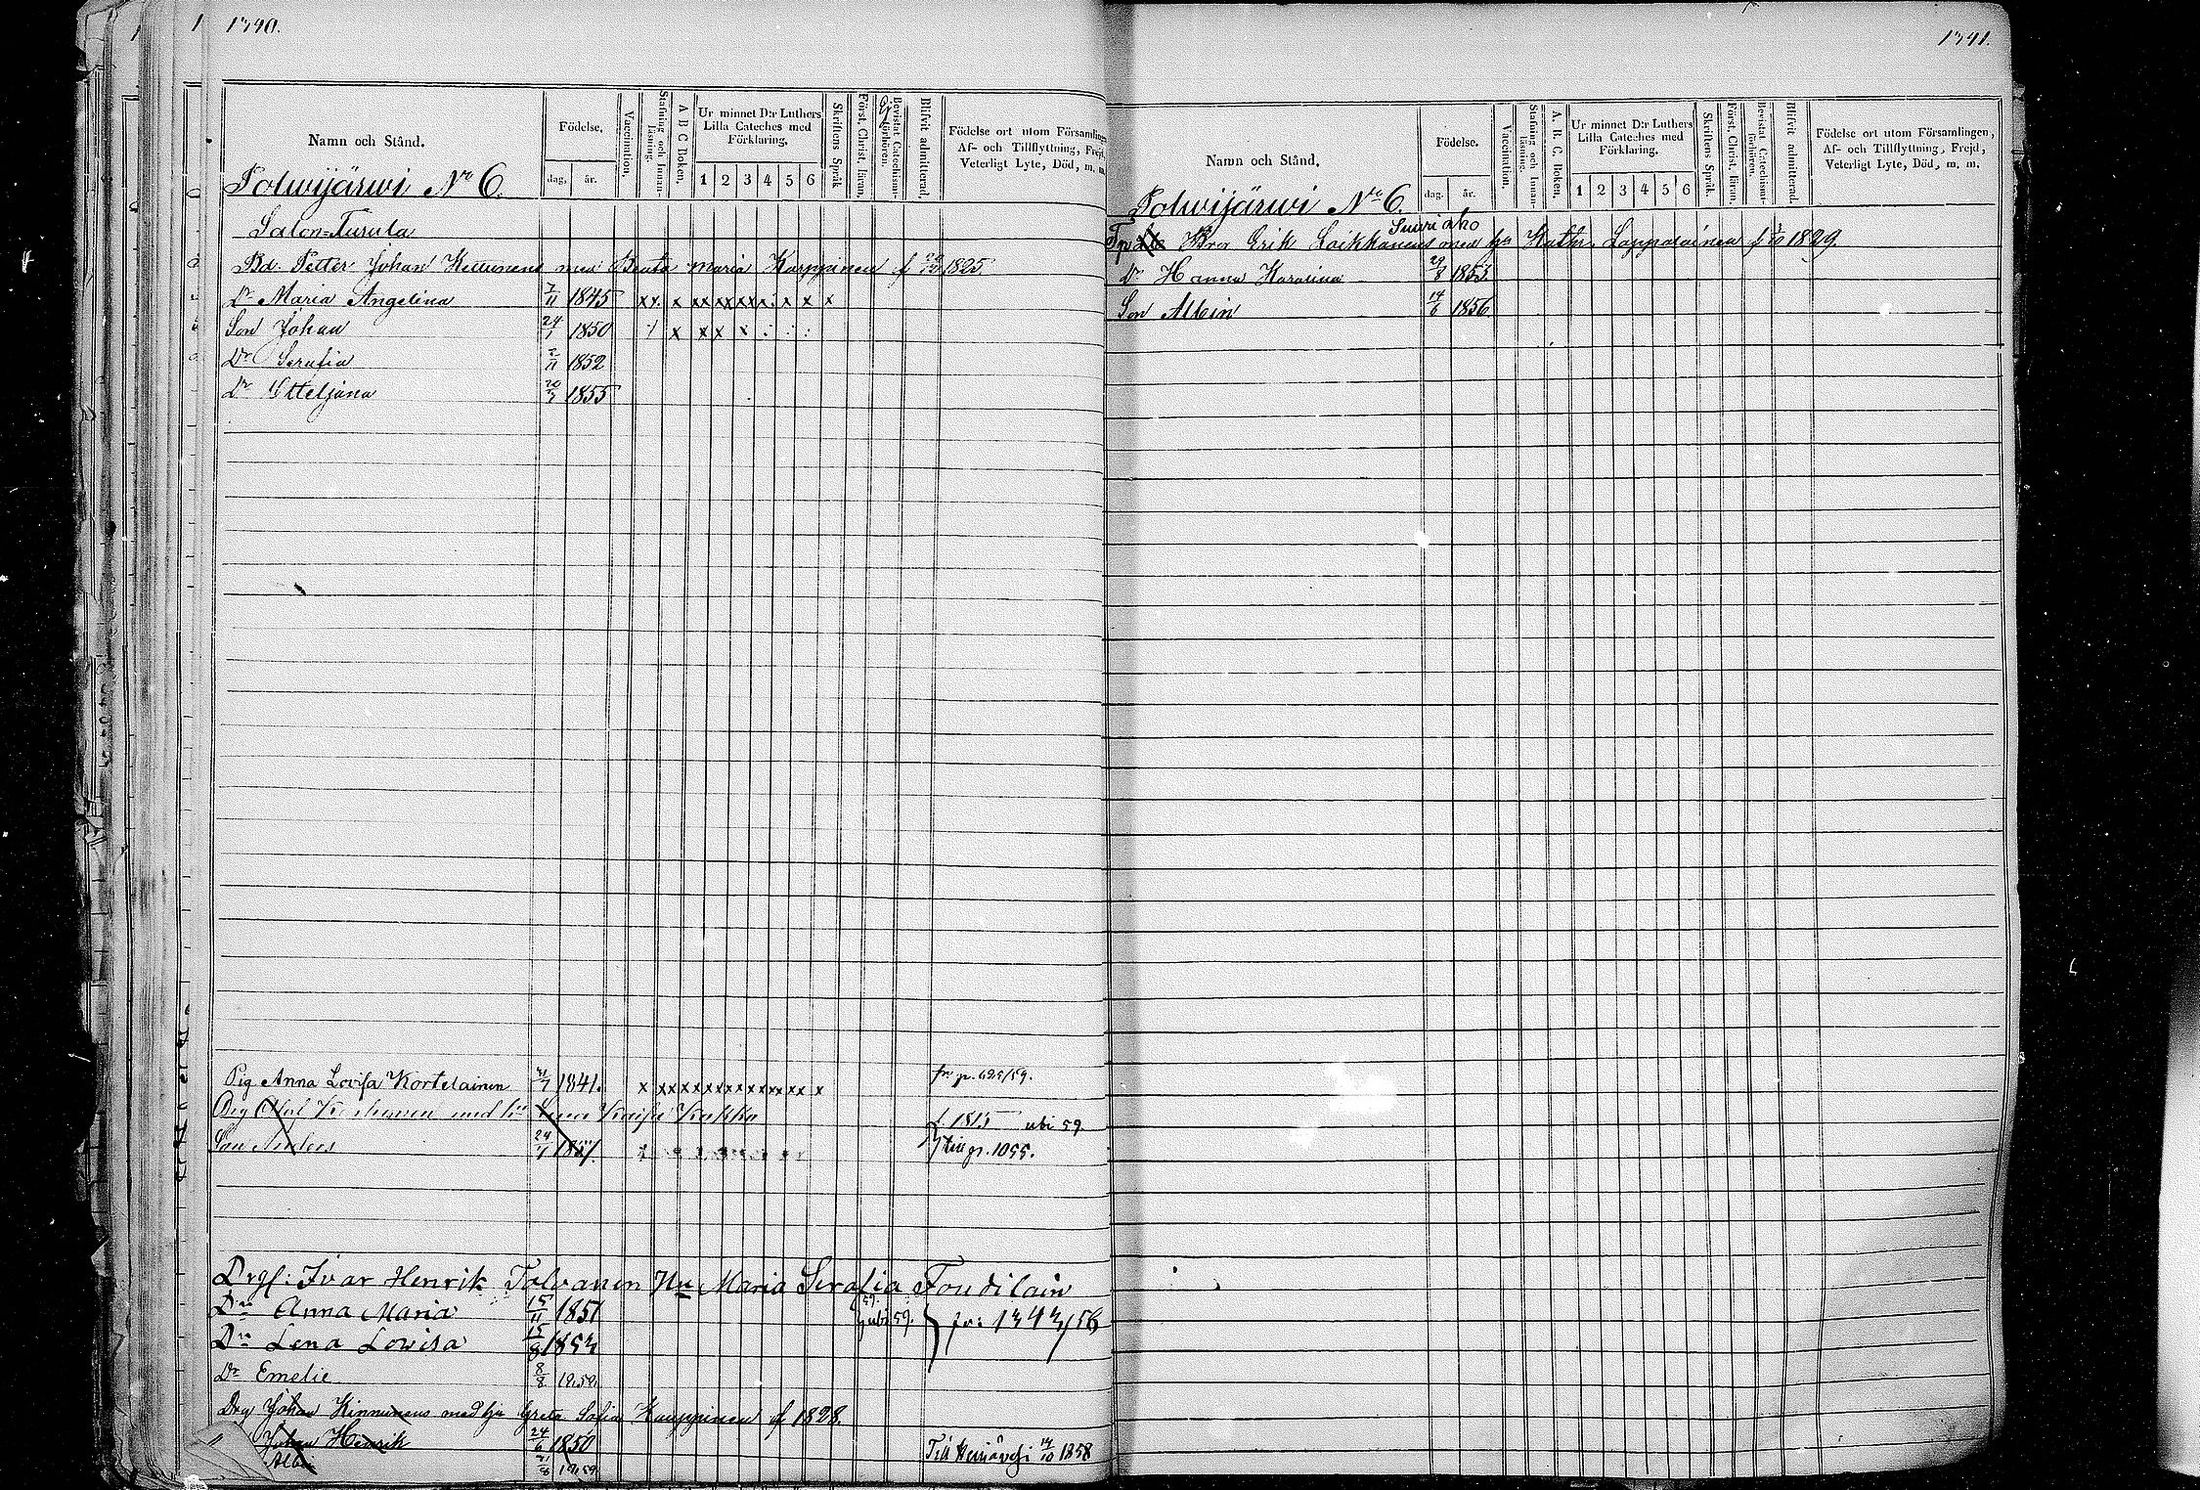 1340.
Namn och Stånd.
Födelse.
dag.
år.
Vaccination.
Stafning och Innan-läsning.
A B C Boken.
Ur minnet D:r Luthers Lilla Cateches med Förklaring.
1 2 3 4 5 6
Skriftens Språk
Först. Christ. läran.
Bevistat Catechismi-förhören.
Blifvit admitterad.
Födelse ort utom Församlingen, Af- och Tillflyttning, Frejd, Veterligt Lyte, Död, m. m.
Polwijärwi No 6.
Salon=Turula
Bd. Petter Johan Ketunens med Beata Maria Karppinen f 1825
Dr Maria Angelina 7/11 1845 x x x x x x x x x x x x
Son Johan 24/1 1850
Dr Serafia 2/11 1852
Dr Otteljana 20/3 1855
Pig Anna Lovisa Kortelainen 1841. x x x x x x x x x x x x x x fr p. 625/59.
f. 1815 ubi 59.
Son Anders 24/ till p. 1055.
Drgf: Ivar Henrik Tolvanen Hu Maria Serafia Toudilain
Dr Anna Maria 15/11 1851 ubi 59. fr: 1343/56
Dr Lena Lowisa 15/8 1853
Dr Emelie 8/8 1858
Drg Johan Kinnunens med hu Greta Sofia Kauppinen f 1828.
Johan Henrik 24/6 1850 Till Heinävesi 14/10 1858
Albin
1341.
Namn och Stånd.
Födelse.
dag.
år.
Vaccination.
Stafning och Innan-läsning.
A. B. C. Boken.
Ur minnet D:r Luthers Lilla Cateches med Förklaring.
1 2 3 4 5 6
Skriftens Språk.
Först. Christ. läran.
Bevistat Catechismi-förhören.
Blifvit admitterad.
Födelse ort utom Församlingen, Af- och Tillflyttning, Frejd, Veterligt Lyte, Död, m. m.
Polwijärwi No 6.
Suuriaho
Bror Erik Laikkanens med hu Kathr. Lappalainen f 3/10 1829
Dr Hanna Karolina 29/8 1853.
Son Albin 14/6 1856.